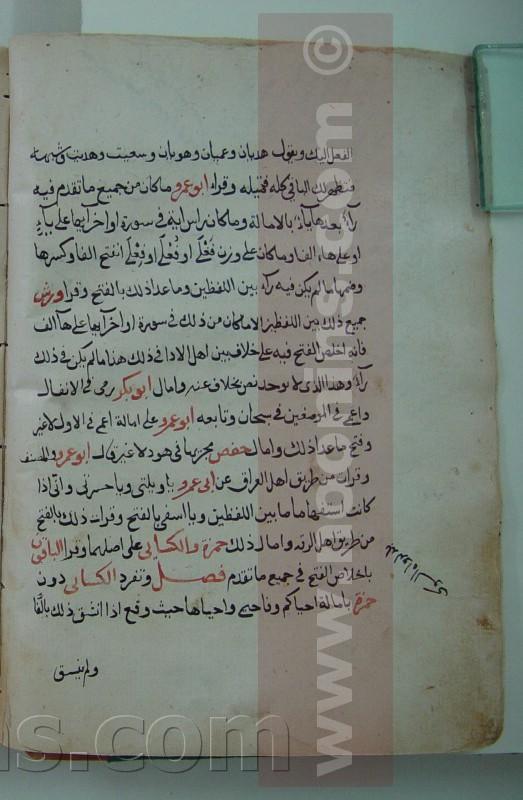 الفعل اليك وتقول هديان وعميان وهويان وسعيت وهديت وشبهه
فتظهر لك الياء في كله فتميله وقراء ابو عمرو ما كان من جميع ما تقدم فيه
رآء بعدها ياء بالامالة وما كان راس اية في سورة اواخر آيها على ياء
او على هاء الف او ما كان على وزن فَعْلَى او فُعْلَى او فِعْلَى بفتح الفا وكسرها
وضمها ما لم يكن فيه رآء بين اللفظين وما عدا ذلك بالفتح وقرا ورش
جميع ذلك بين اللفظين الا ما كان من ذلك في سورة اواخر آيها على هآ الف
فانه اخلص الفتح فيه على خلاف بين اهل الادا في ذلك هذا ما لم يكن في ذلك
رآء وهذا الذي لا يوجد نص بخلاف عنه وامال ابو بكر رمى في الانفال
واعمى في الموضعين في سبحان وتابعه ابو عمرو على امالة اعمى في الاول لا غير
وفتح ما عدا ذلك وامال حفص مجريها في هود لا غير قال ابو عمرو والمصنف
وقرات من طريق اهل العراق عن ابي عمرو يا ويلتى ويا حسرتى وانى اذا
كانت استفهاما ما بين اللفظين ويا اسفي بالفتح وقرات ذلك بالفتح
من طريق اهل الرقه وامال ذلك حمزة والكسائي على اصلهما وقرا الباقون
باخلاص الفتح في جميع ما تقدم فصل وتفرد الكسائي دون
حمزة بامالة احياكم وفاحيى واحياها حيث وقع اذا نسق ذلك بالفا
ولم ينسق
www.aponlins.com ©
ns.com